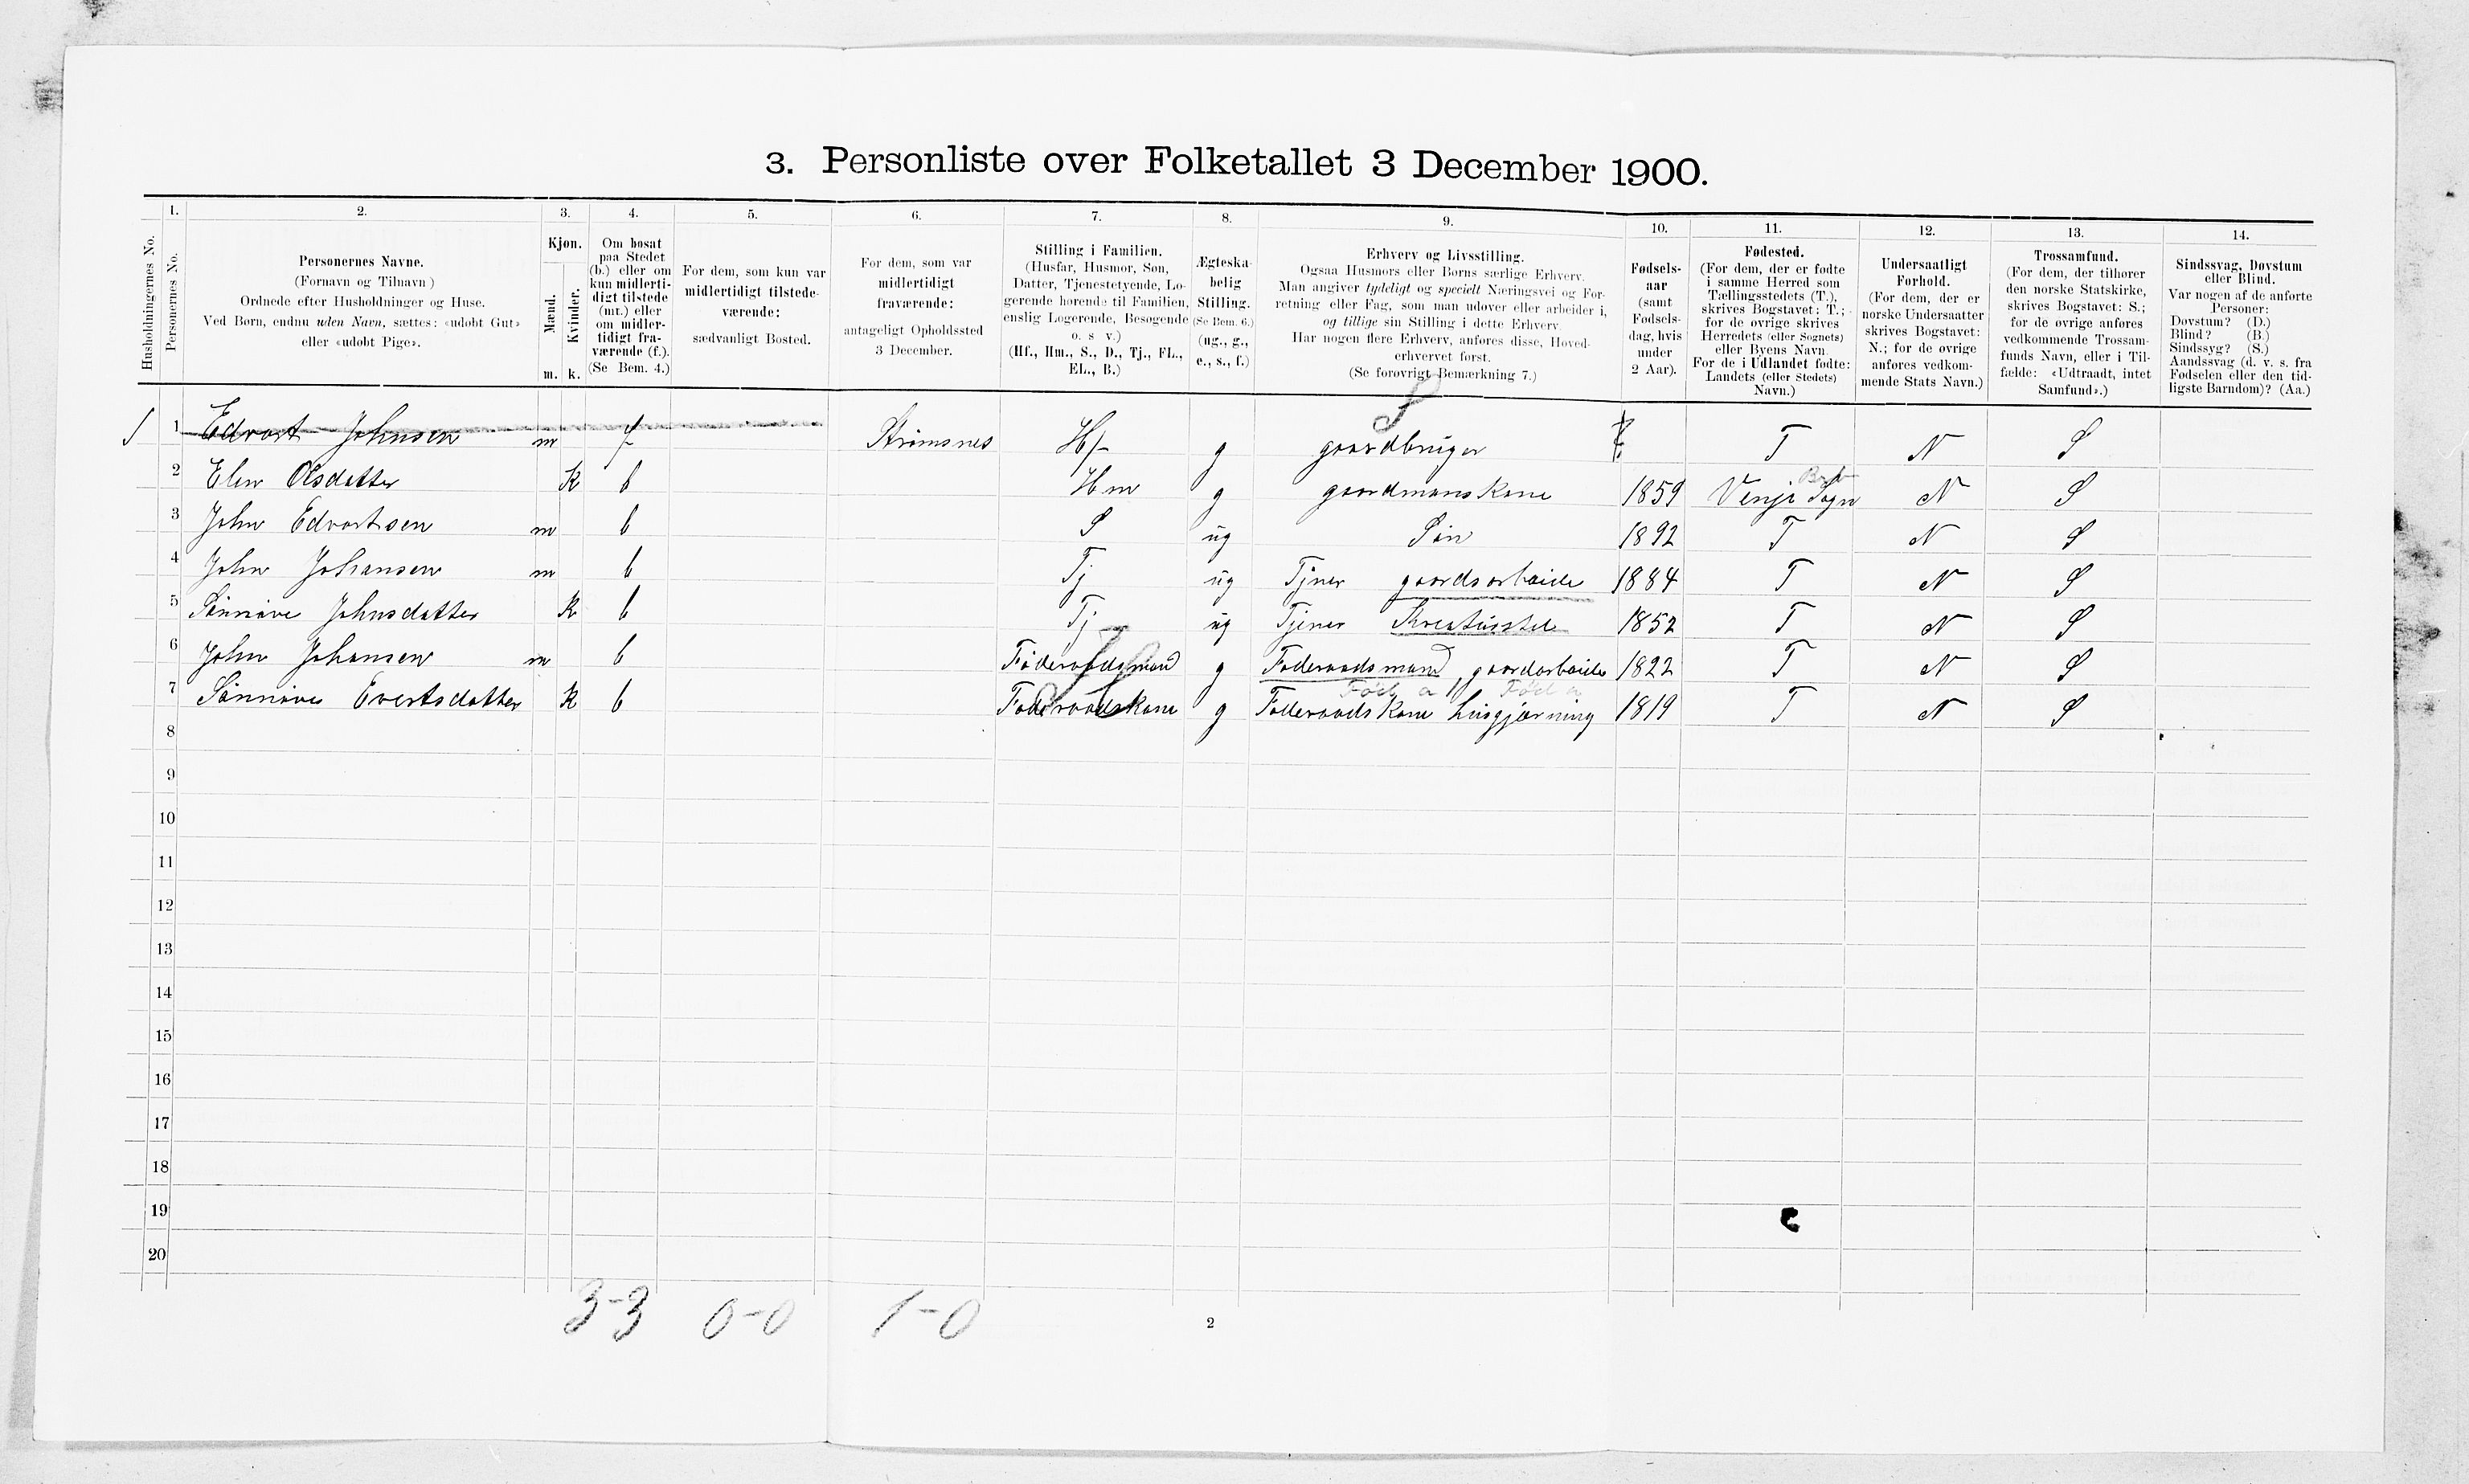 3. Personliste over Folketallet 3 December 1900.
1. 2. 3. 4. 5. 6. 7. 8. 9. 10. 11. 12. 13. 14.
Husholdningernes No.
Personernes No.
Personernes Navne.
(Fornavn og Tilnavn)
Ordnede efter Husholdninger og Huse.
Ved Børn, endnu uden Navn, sættes: «udøbt Gut»
eller «udøbt Pige».
Kjøn.
Mænd.
Kvinder.
m. k.
Om bosat
paa Stedet
(b.) eller om
kun midlerti-
digt tilstede
(mt.) eller
om midler-
tidigt fra-
værende (f.).
(Se Bem. 4.)
For dem, som kun var
midlertidigt tilstede-
værende:
sædvanligt Bosted.
For dem, som var
midlertidigt
fraværende:
antageligt Opholdssted
3 December.
Stilling i Familien.
(Husfar, Husmor, Søn,
Datter, Tjenestetyende, Lo-
gerende hørende til Familien,
enslig Logerende, Besøgende
o. s v.)
(Hf., Hm., S., D., Tj., FL.,
EL., B.)
Ægteska-
belig
Stilling.
(Se Bem. 6.)
(ug., g.,
e., s., f.)
Erhverv og Livsstilling.
Ogsaa Husmors eller Børns særlige Erhverv.
Man angiver tydeligt og specielt Næringsvei og For-
retning eller Fag, som man udøver eller arbeider i,
og tillige sin Stilling i dette Erhverv.
Har nogen flere Erhverv, anføres disse, Hoved-
erhvervet først.
(Se forøvrigt Bemærkning 7.)
Fødsels-
aar
(samt
Fødsels-
dag, hvis
under
2 Aar).
Fødested.
(For dem, der er fødte
i samme Herred som
Tællingsstedets (T.),
skrives Bogstavet: T.;
for de øvrige skrives
Herredets (eller Sognets)
eller Byens Navn.
For de i Udlandet fødte:
Landets (eller Stedets)
Navn.)
Undersaatligt
Forhold.
(For dem, der er
norske Undersaatter
skrives Bogstavet:
N.; for de øvrige
anføres vedkom-
mende Stats Navn.)
Trossamfund.
(For dem, der tilhører
den norske Statskirke,
skrives Bogstavet: S.;
for de øvrige anføres
vedkommende Trossam-
funds Navn, eller i Til-
fælde: «Udtraadt, intet
Samfund».)
Sindssvag, Døvstum
eller Blind.
Var nogen af de anførte
Personer:
Døvstum? (D.)
Blind? (B.)
Sindssyg? (S.)
Aandssvag (d. v. s. fra
Fødselen eller den tid-
ligste Barndom)? (Aa.)
1 Edvart Johnsen m f Strømsnes Hf g gaardbruger T N S
2 Elen Olsdatter K b Hm g gaardmans Kone 1859 Sogn N S
3 John Edvartsen m b S ug Søn 1892 T N S
4 John Johansen m b Tj ug Tjner gaardsarbeide 1884 T N S
5 Sønnøve Johnsdatter K b Tj ug Tjener Kreaturstel 1852 T N S
6 John Johansen m b Føderaadsmand g Føderaadsmand, gaardarbeide 1822 T N S
7 Sønnøve Evertsdatter K b Føderaadskone g Føderaads Kone husgjærning 1819 T N S
8
9
10
11
12
13
14
15
16
17
18
19
20
3-3 0-0 1-0
2